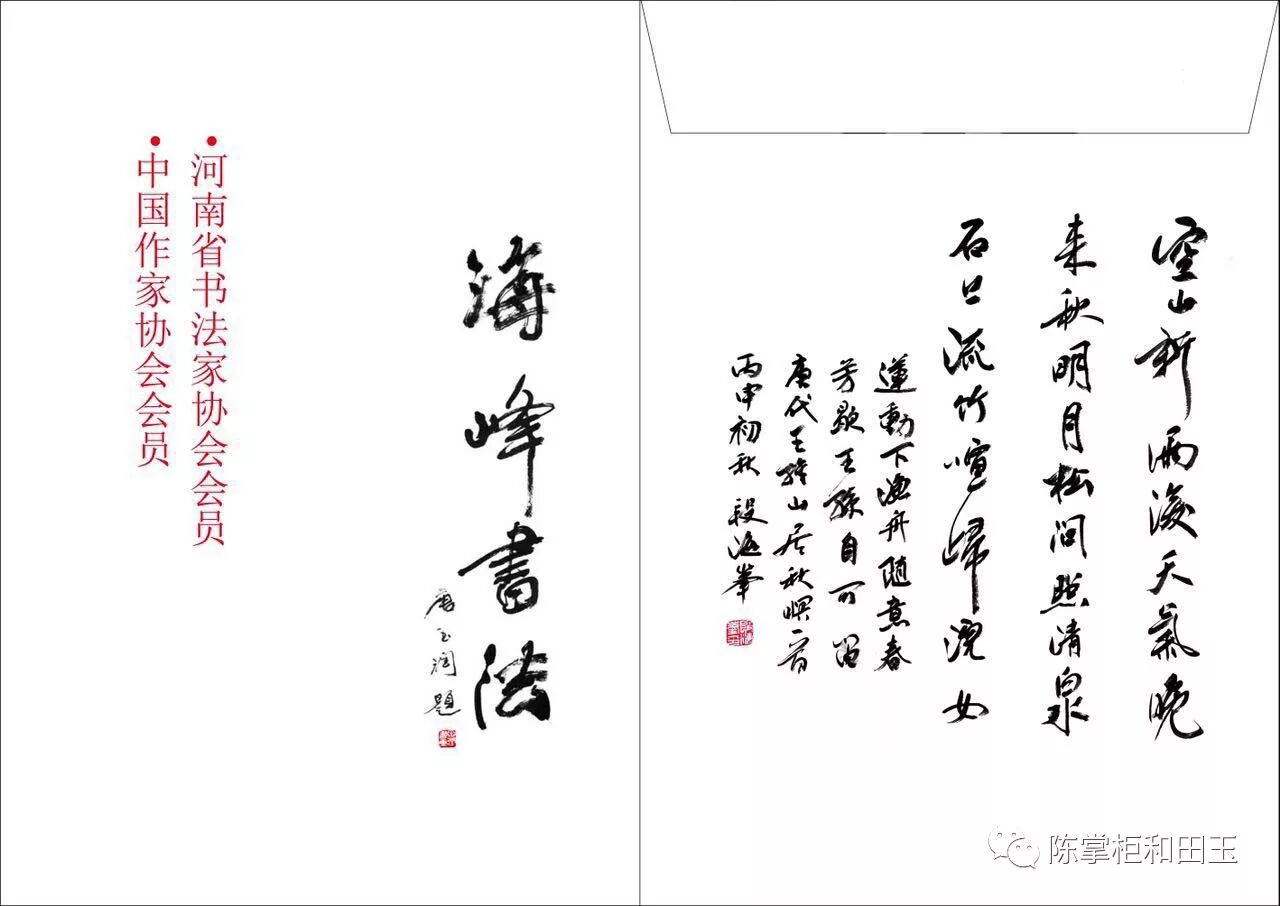 海峰書法
唐玉润題
•河南省书法家协会会员
•中国作家协会会员
空山新雨後天氣晚
来秋明月松间照清泉
石上流竹喧歸浣女
蓮動下漁舟隨意春
芳歇王孫自可留
唐代王維山居秋暝一首
丙申初秋 段海峯
陈掌柜和田玉